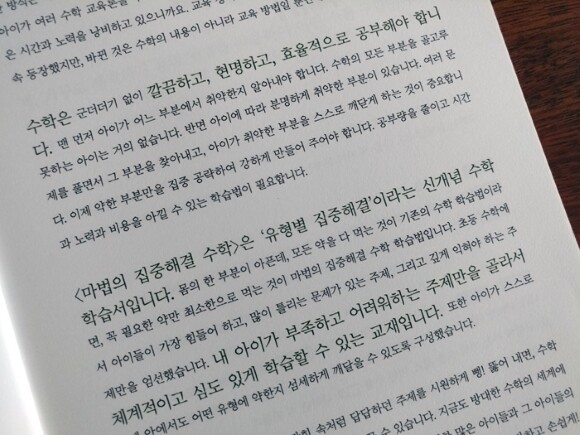 아이가 여러 수학 교육
은 시간과 노력을 낭비하고 있으니까요. 교육
속 등장했지만, 바뀐 것은 수학의 내용이 아니라 교육 방법일 뿐
수학은 군더더기 없이 깔끔하고, 현명하고, 효율적으로 공부해야 합니
다. 맨 먼저 아이가 어느 부분에서 취약한지 알아내야 합니다. 수학의 모든 부분을 골고루
못하는 아이는 거의 없습니다. 반면 아이에 따라 분명하게 취약한 부분이 있습니다. 여러 문
제를 풀면서 그 부분을 찾아내고, 아이가 취약한 부분을 스스로 깨닫게 하는 것이 중요합니
다. 이제 약한 부분만을 집중 공략하여 강하게 만들어 주어야 합니다. 공부량을 줄이고 시간
과 노력과 비용을 아낄 수 있는 학습법이 필요합니다.
<마법의 집중해결 수학>은 ‘유형별 집중해결’이라는 신개념 수학
학습서입니다. 몸의 한 부분이 아픈데, 모든 약을 다 먹는 것이 기존의 수학 학습법이라
면, 꼭 필요한 약만 최소한으로 먹는 것이 마법의 집중해결 수학 학습법입니다. 초등 수학에
서 아이들이 가장 힘들어 하고, 많이 틀리는 문제가 있는 주제, 그리고 깊게 익혀야 하는 주
제만을 엄선했습니다. 내 아이가 부족하고 어려워하는 주제만을 골라서
체계적이고 심도 있게 학습할 수 있는 교재입니다. 또한 아이가 스스로
제 안에서도 어떤 유형에 약한지 섬세하게 깨달을 수 있도록 구성했습니다.
속처럼 답답하던 주제를 시원하게 뻥! 뚫어 내면, 수학
수 있습니다. 지금도 방대한 수학의 세계에
많은 아이들과 그 아이들의
하고 손쉽게